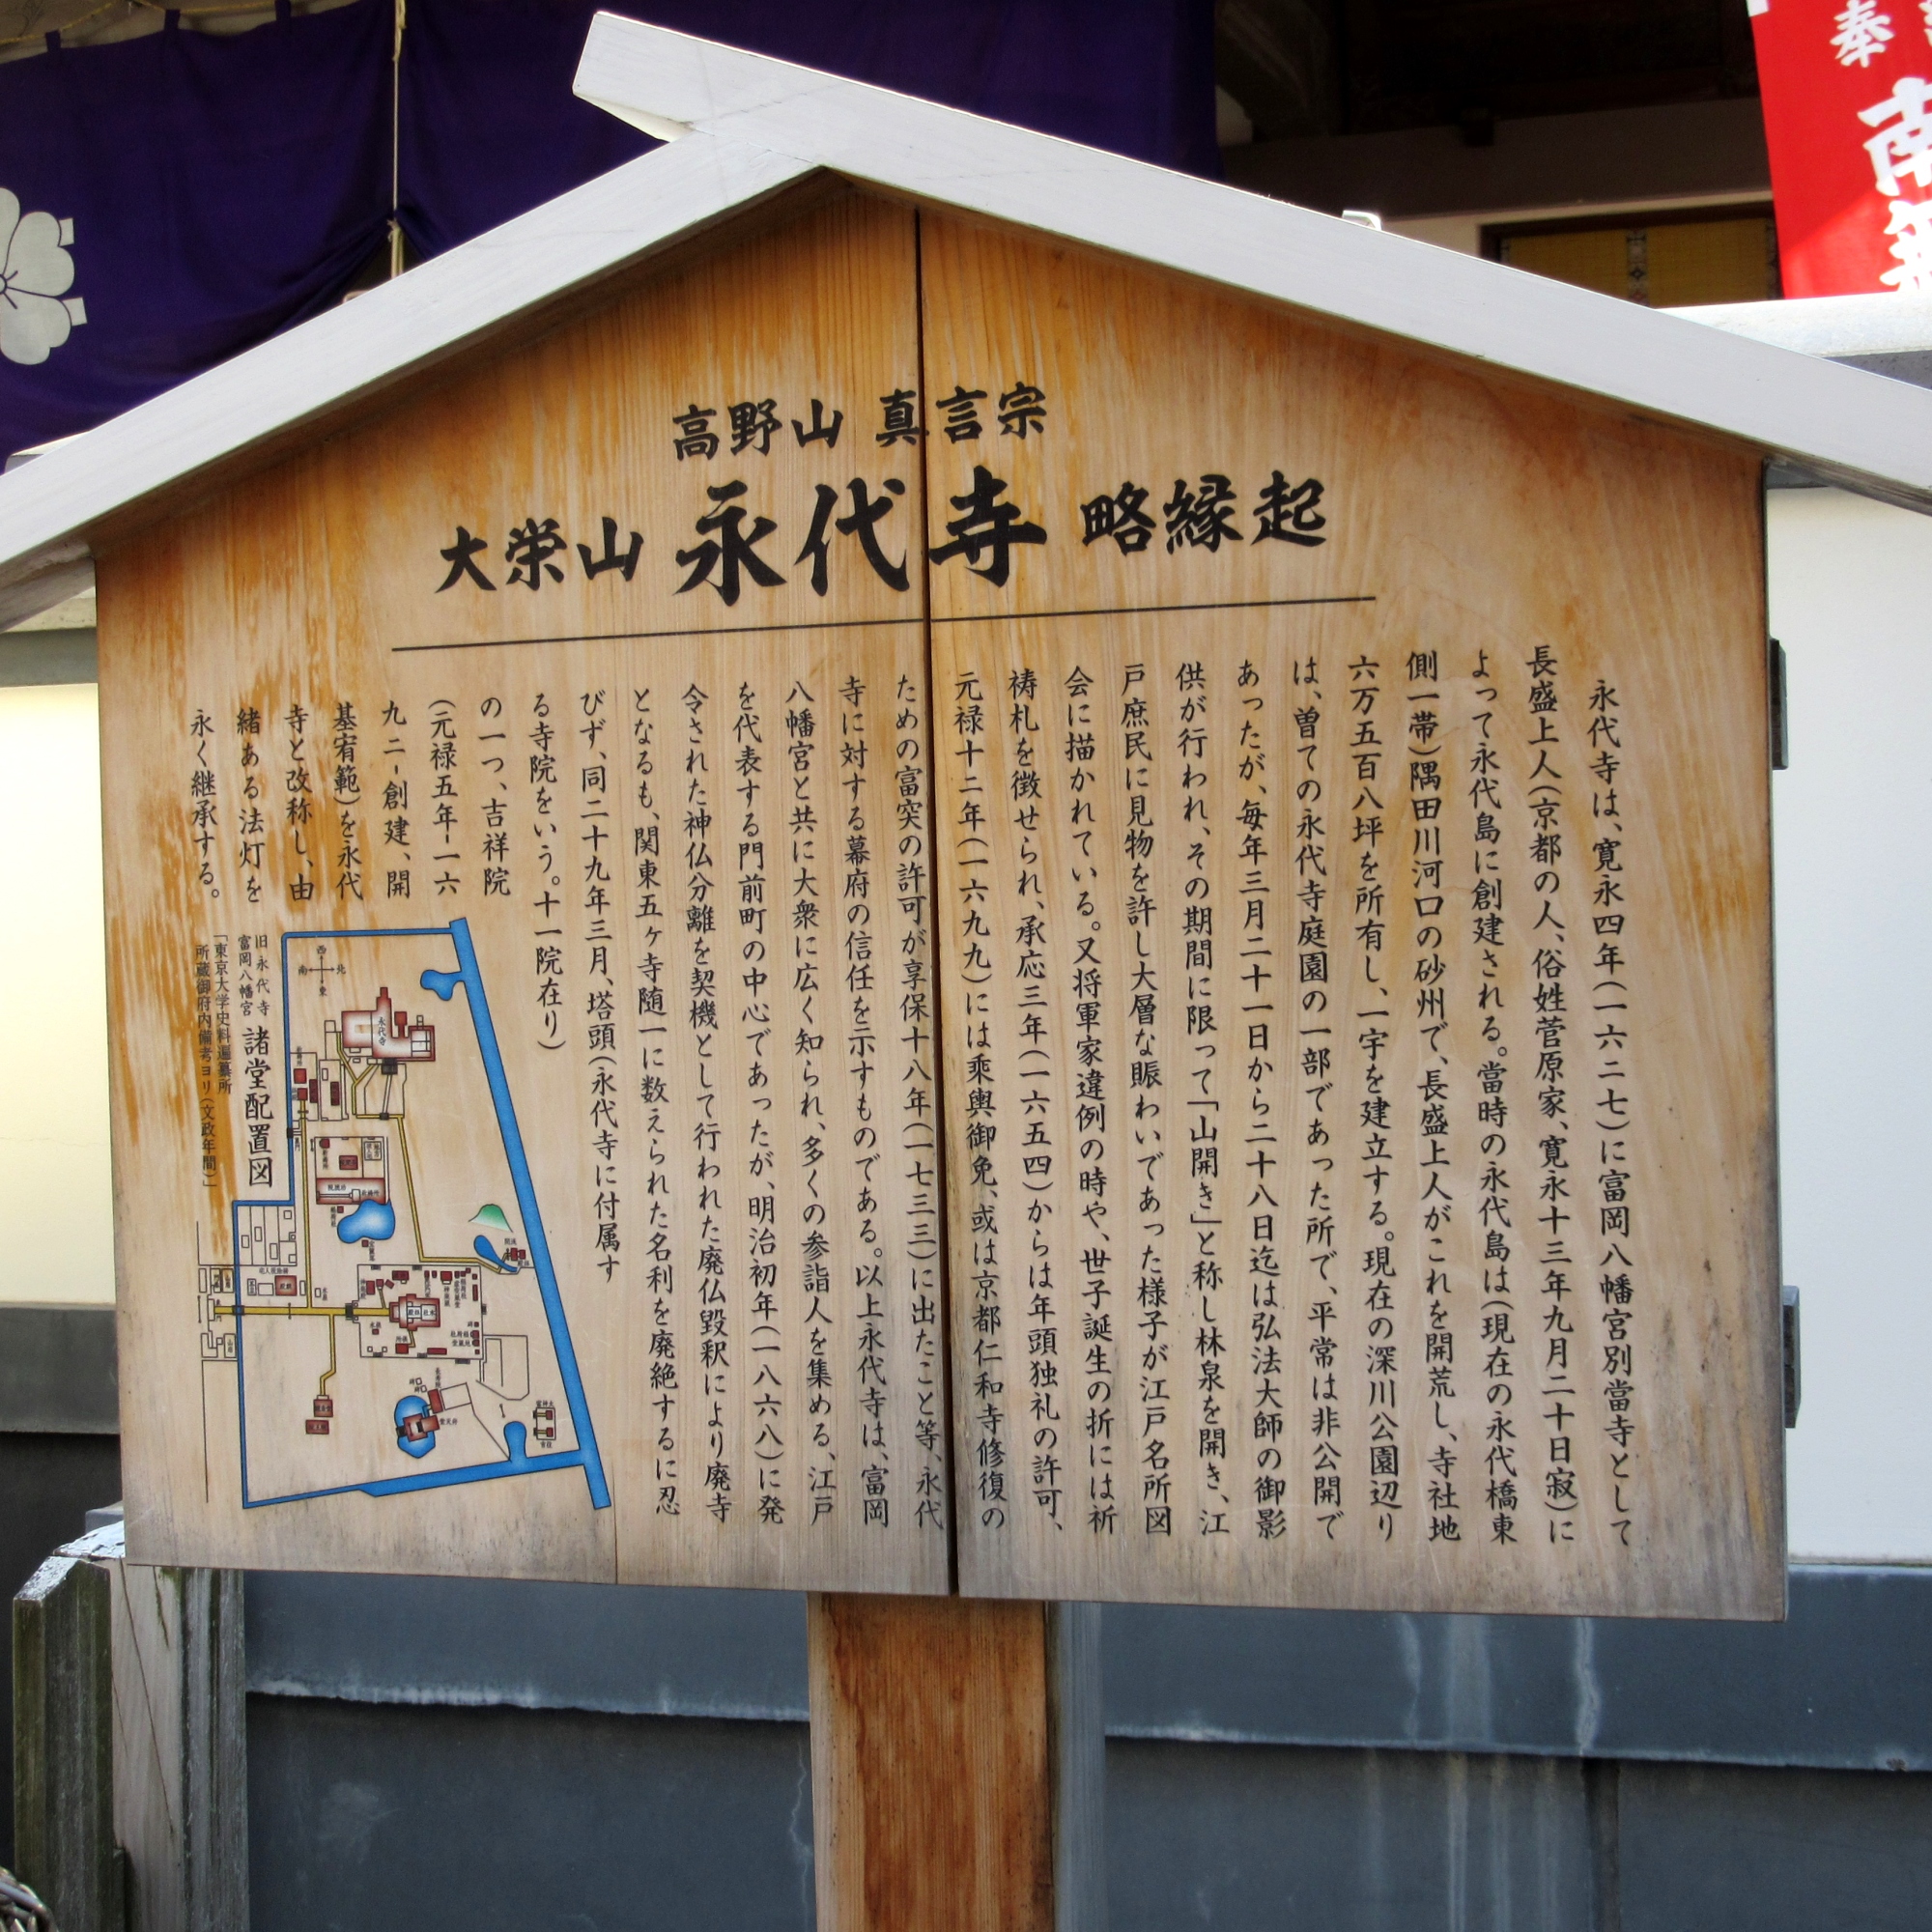 高野山 真言宗
大栄山 永代寺 略縁起
永代寺は、寛永四年(一六二七)に富岡八幡宮別當寺として
長盛上人(京都の人、俗姓菅原家、寛永十三年九月二十日寂)に
よって永代島に創建される。當時の永代島は(現在の永代橋東
側一帯)隅田川河口の砂州で、長盛上人がこれを開荒し、寺社地
六万五百八坪を所有し、一宇を建立する。現在の深川公園辺り
は、曽ての永代寺庭園の一部であった所で、平常は非公開で
あったが、毎年三月二十一日から二十八日迄は弘法大師の御影
供が行われ、その期間に限って「山開き」と称し林泉を開き、江
戸庶民に見物を許し大層な賑わいであった様子が江戸名所図
会に描かれている。又将軍家違例の時や、世子誕生の折には祈
祷札を徴せられ、承応三年(一六五四)からは年頭独礼の許可、
元禄十二年(一六九九)には乘輿御免、或は京都仁和寺修復の
ための富突の許可が享保十八年(一七三三)に出たこと等、永代
寺に対する幕府の信任を示すものである。以上永代寺は、富岡
八幡宮と共に大衆に広く知られ、多くの参詣人を集める、江戸
を代表する門前町の中心であったが、明治初年(一八六八)に発
令された神仏分離を契機として行われた廃仏毀釈により廃寺
となるも、関東五ヶ寺随一に数えられた名利を廃絶するに忍
びず、同二十九年三月、塔頭(永代寺に付属す
る寺院をいう。十一院在り)
の一つ、吉祥院
(元禄五年-一六
九二-創建、開
基宥範)を永代
寺と改称し、由
緒ある法灯を
永く継承する。
旧永代寺
富岡八幡宮
諸堂配置図
「東京大学史料遍纂所
所蔵御府内備考ヨリ(文政年間)」
西
南 北
東
永代寺
奉
南無